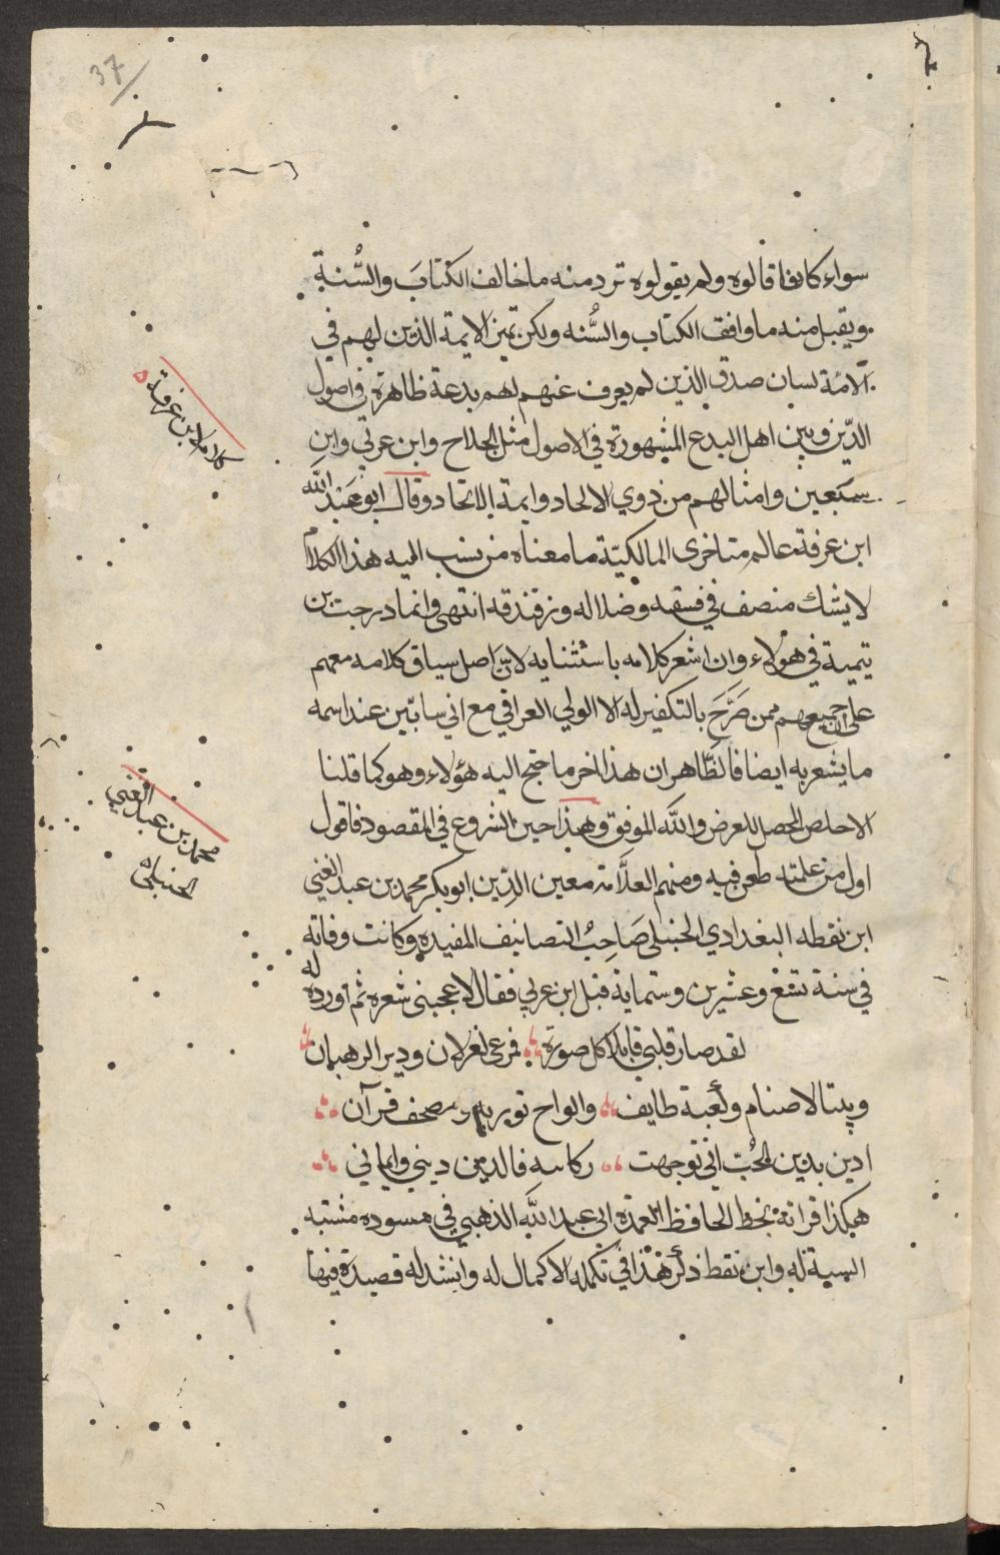 37
سواء كانفا قالوه ولم يقولوه ترد منه ما خالف الكتابَ والسُّنة
ويقبل منه ما وافق الكتاب والسُّنه ولكن تميز الايمة الذين لهم في
الامّة لسان صدق الذين لم يعرف عنهم لهم بدعة ظاهرة في اصول
الدّين وبين اهل البدع المشهورة في الاصول مثل الحلاج وابن عربي وابن
سبعين وامثالهم من ذوي الالحاد وايمة الاتحاد وقال ابو عبد الله
ابن عرفة عالم متاخرى المالكيّة ما معناه من نسب اليه هذا الكلام
لا يشك منصف في فسقه وضلاله وزندقته انتهى وانما درجت بن
تيمية في هؤلاء وان اشعر كلامه باستثنايه لان اصل سياق كلامه معهم
على جميعهم ممن صَرَّحَ بالتكفير له الا الولي العراقي مع اني سابيّن عند اسمه
ما يشعر به ايضا فالظّاهر ان هذا اخر ما جنح اليه هؤلاء وهو كما قلنا
الاخلص المحصل للغرض والله الموفق وهذا حين الشروع في المقصود فاقول
اول من علمته طعن فيه ومنهم العلّامة معين الدّين ابو بكر محمد بن عبد الغني
ابن نقطه البغدادي الحنبلى صَاحبُ التصانيف المفيدة وكانت وفاته
في سنة تسع وعشرين وستماية قبل ابن عربي فقال لا يعجبنى شعره ثم اورد له
لقد صار قلبي قابلا كل صورة فمرعى لغزلان ودير الرهبان
وبيتا لاصنام وكعبة طايف والواح توريه ومصحف قرآن
ادين بدين الحُبّ انّي توجهت ركائبه فالدين ديني وايماني
هكذا قراته بخط الحافظ العمدة ابي عبد الله الذهبي في مسوده مشتبه
النسبة له وابن نقطة ذكر هذا في تكمله الاكمال له وانشد له قصيدة فيها
كلام ابن عرفة
محمد بن عبد الغني
الحنبلى